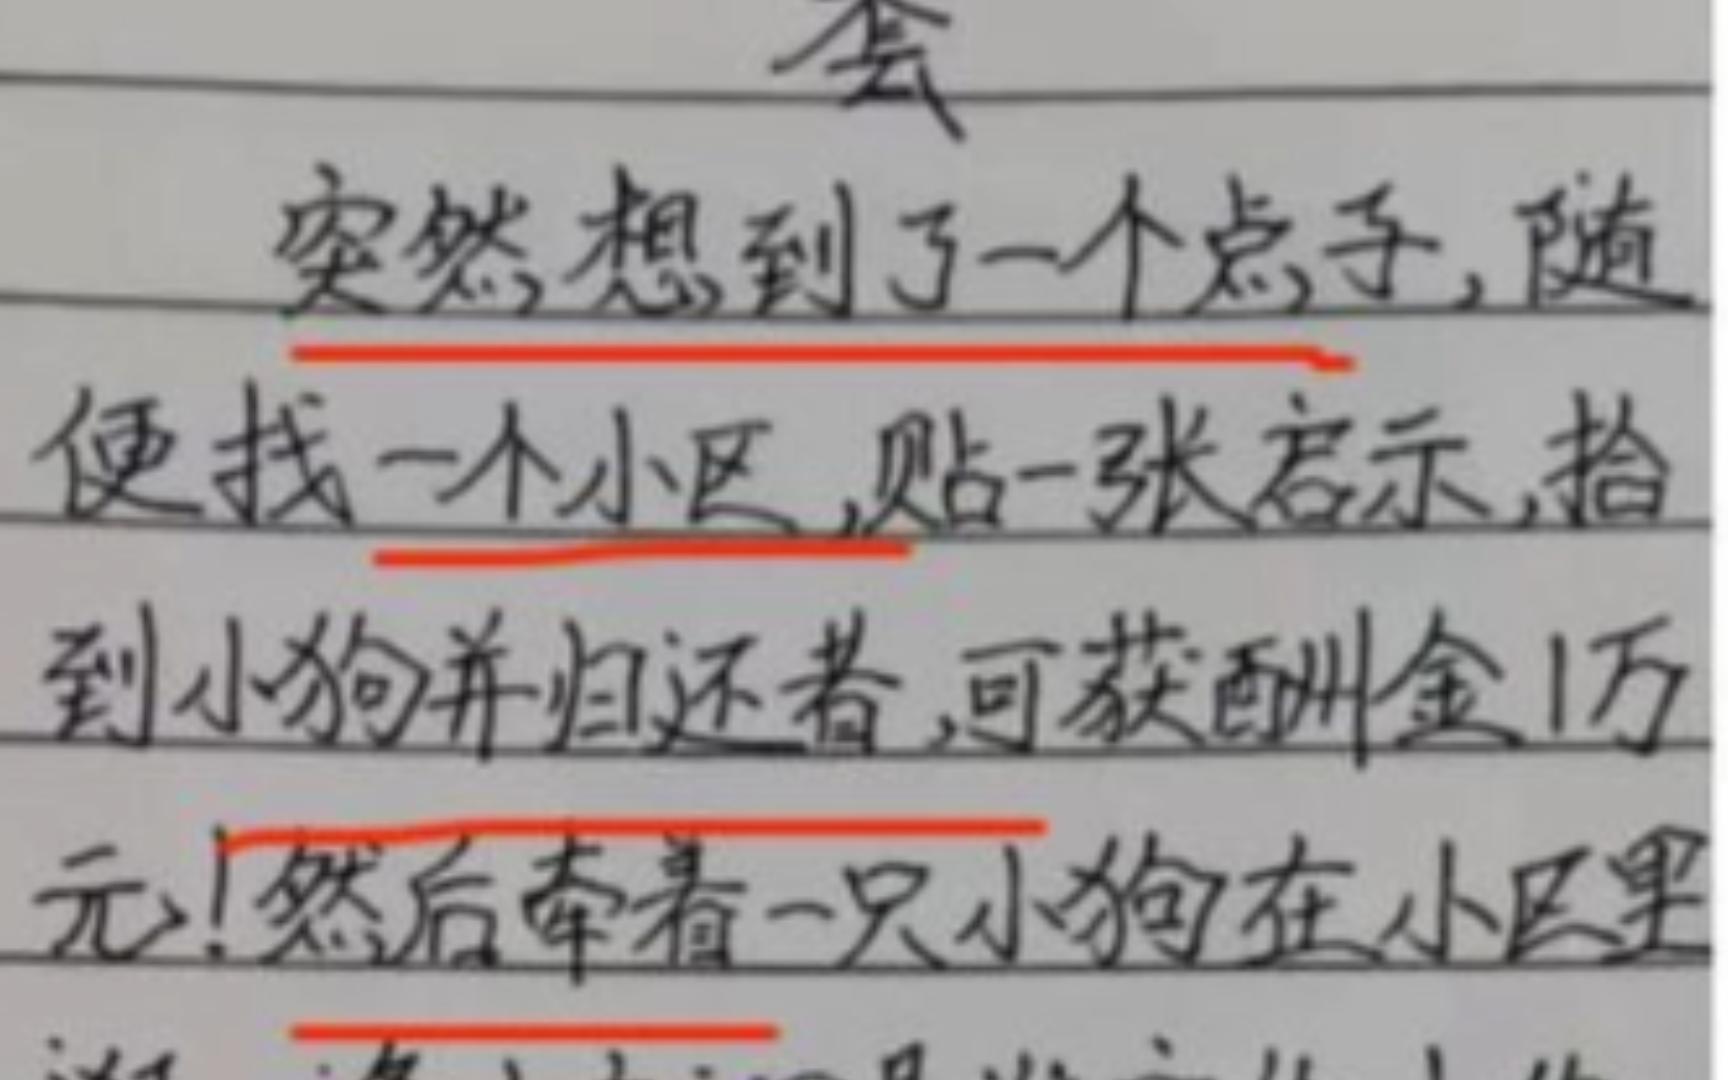 套
突然想到了一个点子,随
便找一个小区,贴一张启示,拾
到小狗并归还者,可获酬金1万
元!然后牵着一只小狗在小区里